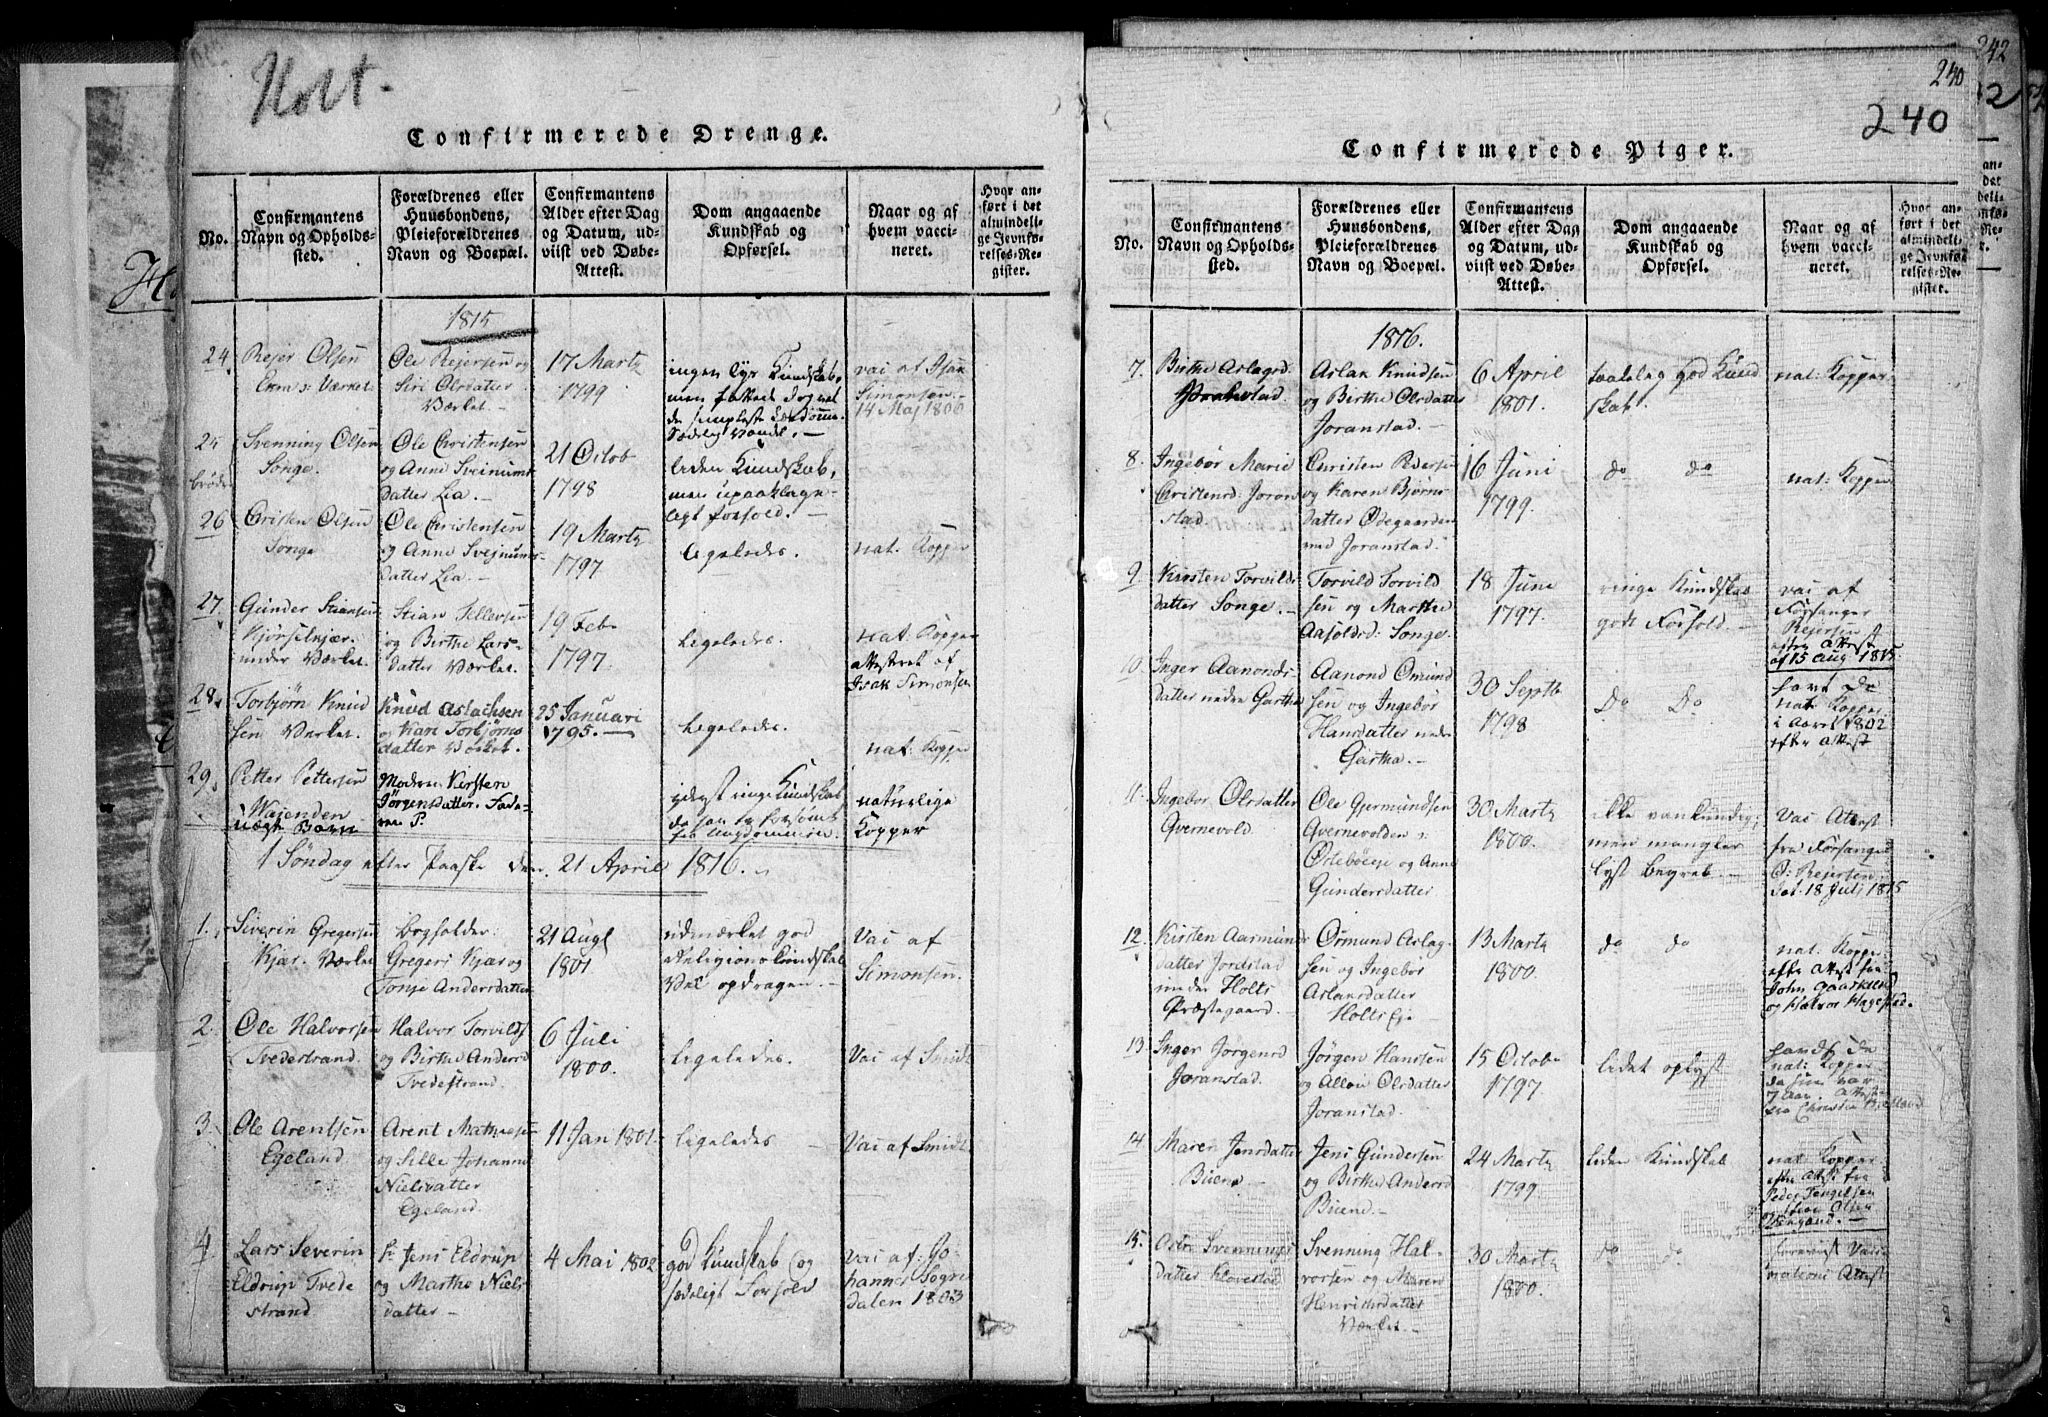 Holt.
Confirmerede Drenge.
No.
Confirmantens
Navn og Opholds-
sted.
Forældrenes eller
Huusbondens,
Pleieforældrenes
Navn og Boepæl.
Confirmantens
Alder efter Dag
og Datum, ud-
viist ved Døbe-
Attest.
Dom angaaende
Kundskab og
Opførsel.
Naar og af
hvem vacci-
neret.
Hvor an-
ført i det
almindeli-
ge Jevnfø-
relses-Re-
gister.
1815
24
Rejer Olsen
Værket
Ole Rejersen og
Siri Olsdatter
Værket.
17 Martz
1799
ingen lys Kundskab,
men fattede dog vel
Sædelig Vandel.
vac af Isak
Simonsen
14 Maj 1800
25
brødre
Svenning Olsen
Songe.
Ole Christensen
og Anne Sveinums
datter Lia.
21 Octob
1798
liden Kundskab,
men upaaklage-
ligt forhold.
26
Cristen Olsen
Songe
Ole Christensen
og Anne Svejnums-
datter Lia.
19 Martz
1797
ligeledes.
nat. Kopper
27.
Gunder Stiansen
Kjørselkjær
under Værket.
Stian Tellefsen
og Birthe Lars-
datter Værket.
19 Feb
1797
ligeledes.
nat. Kopper
attesteret af
Isak Simonsen
28.
Torbjørn Knud
sen Værket
Knud Aslachsen
og Kari Torbjørns
datter Værket.
25 Januari
1795.
ligeledes.
nat: Kopper
29.
Petter Pettersen
Wajenden
uægt Barn
Moderen Kirsten
Jørgensdatter. Fade-
ren P.
yderst ringe Kundskab
naturlige
Kopper
1 Søndag efter Paaske den 21 April 1816.
1.
Siverin Gregersen
Kjær. Værket
bogholder
Gregers Kjær og
Tonje Andersdatter
21 Augt
1801
udmærket god
Religions kundskab
Vel opdragen.
Vac af
Simonsen.
2.
Ole Halvorsen
Tvedestrand.
Halvor Torvilds
og Birthe Andersd
Tvedestrand
6 Juli
1800.
ligeledes.
Vac af Smidt
3.
Ole Arentsen
Egeland
Arent Mathiesen
og Sille Johanne
Nielsdatter
Egeland.
11 Jan 1801.
ligeledes
Vac af Smidt
4
Lars Severin
Eldrup Tvede
strand
Sr Jens Eldrup
og Marthe Niels
datter
4 Mai 1802
god Kundskab og
sædeligt Forhold
Vac af: Jo-
hannes Sogne
dalen 1803
242
240
240
Confirmerede Piger.
No.
Confirmantens
Navn og Opholds-
sted.
Forældrenes eller
Huusbondens,
Pleieforældrenes
Navn og Boepæl.
Confirmantens
Alder efter Dag
og Datum, ud-
viist ved Døbe-
Attest.
Dom angaaende
Kundskab og
Opførsel.
Naar og af
hvem vacci-
neret.
Hvor an-
ført i det
almindeli-
ge Jevnfø-
relses-Re-
gister.
1816.
7.
Birthe Aslagsd.
Aslak Knudsen
og Birthe Olsdatter
Joranstad.
6 April
1801.
taalelig god Kund
skab.
nat: Kopper
8.
Ingebør Marie
Christensd. Joran
stad.
Christen Pedersen
og Karen Bjørns
datter Ødegaarden
ved Joranstad.
16 Juni
1799.
do do
nat: Kopper
9
Kirsten Torvilds
datter Songe.
Torvild Torvild
sen og Marthe
Aasoldsd: Songe
18 June
1797.
ringe Kundskab
godt Forhold.
vac af
Forsanger
Rejersen
efter Attest
af 15 Aug 1815.
10.
Inger Aanonds
datter neden Gartha
Aanond Omund
sen og Ingebør
Hansdatter neden
Gartha.
30 Septb
1798
Do Do
havt de
nat. Kopper
i Aaret 1802
efter Attest
11.
Ingebor Olsdatter
Gvernevold
Ole Gjermundsen
Gvernevolden i
Østeböeje og Anne
Gundersdatter
30 Martz
1800.
ikke vankundig;
men mangler
lyst Begreb.
Vac Attest
fra Forsanger
O: Rejersen
Dat. 18 Juli 1815
12.
Kirsten Aasmunds
datter Jordstad
under Holts
Præstegaard.
Osmund Aslag-
sen og Ingebør
Aslaksdatter
Holts Eje
13 Martz
1800.
do do
nat. Kopper
efter Attest fra
John Gaaskilnd
og Halvor Hagestad.
13.
Inger Jørgensd
Joranstad.
Jørgen Hansen
og Olsdatter
Joranstad.
15 Octobr
1797.
lidet oplyst
havdt de
nat: Kopper
da hun var
7 Aar. Attest
fra Christen
14
Maren Jensdatter
Buene
Jens Gundersen
og Birthe Andersd
Buene
24 Martz
1799.
liden Kundskab
nat. Kopper
efter Attest fra
Peder Tengelsen
og Olsen
15.
Svennings
datter
Svenning Hal-
vorsen og Maren
Henrichsdatter
Værket.
30 Martz
1800.
do do
foreviist Vac-
inations Attest